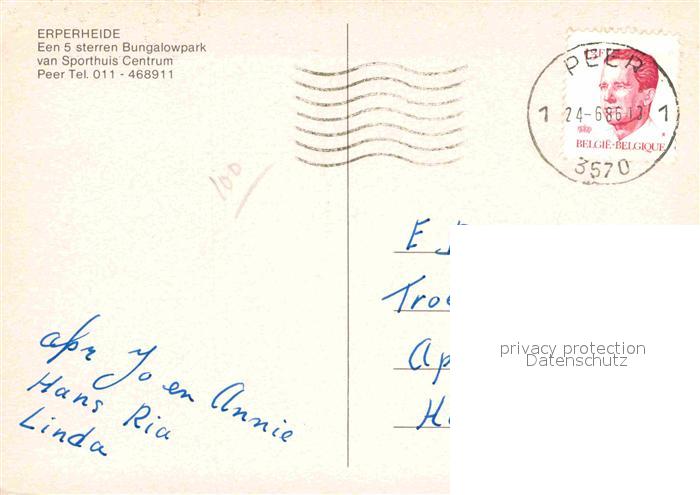 ERPERHEIDE
Een 5 sterren Bungalowpark
van Sporthuis Centrum
Peer Tel. 011 - 468911
PEER
1 24-6 86-13 1
BELGIË-BELGIQUE
3570
100
E
Troe
Ap
privacy protection
Datenschutz
afz Jo en Annie
Hans Ria
Linda